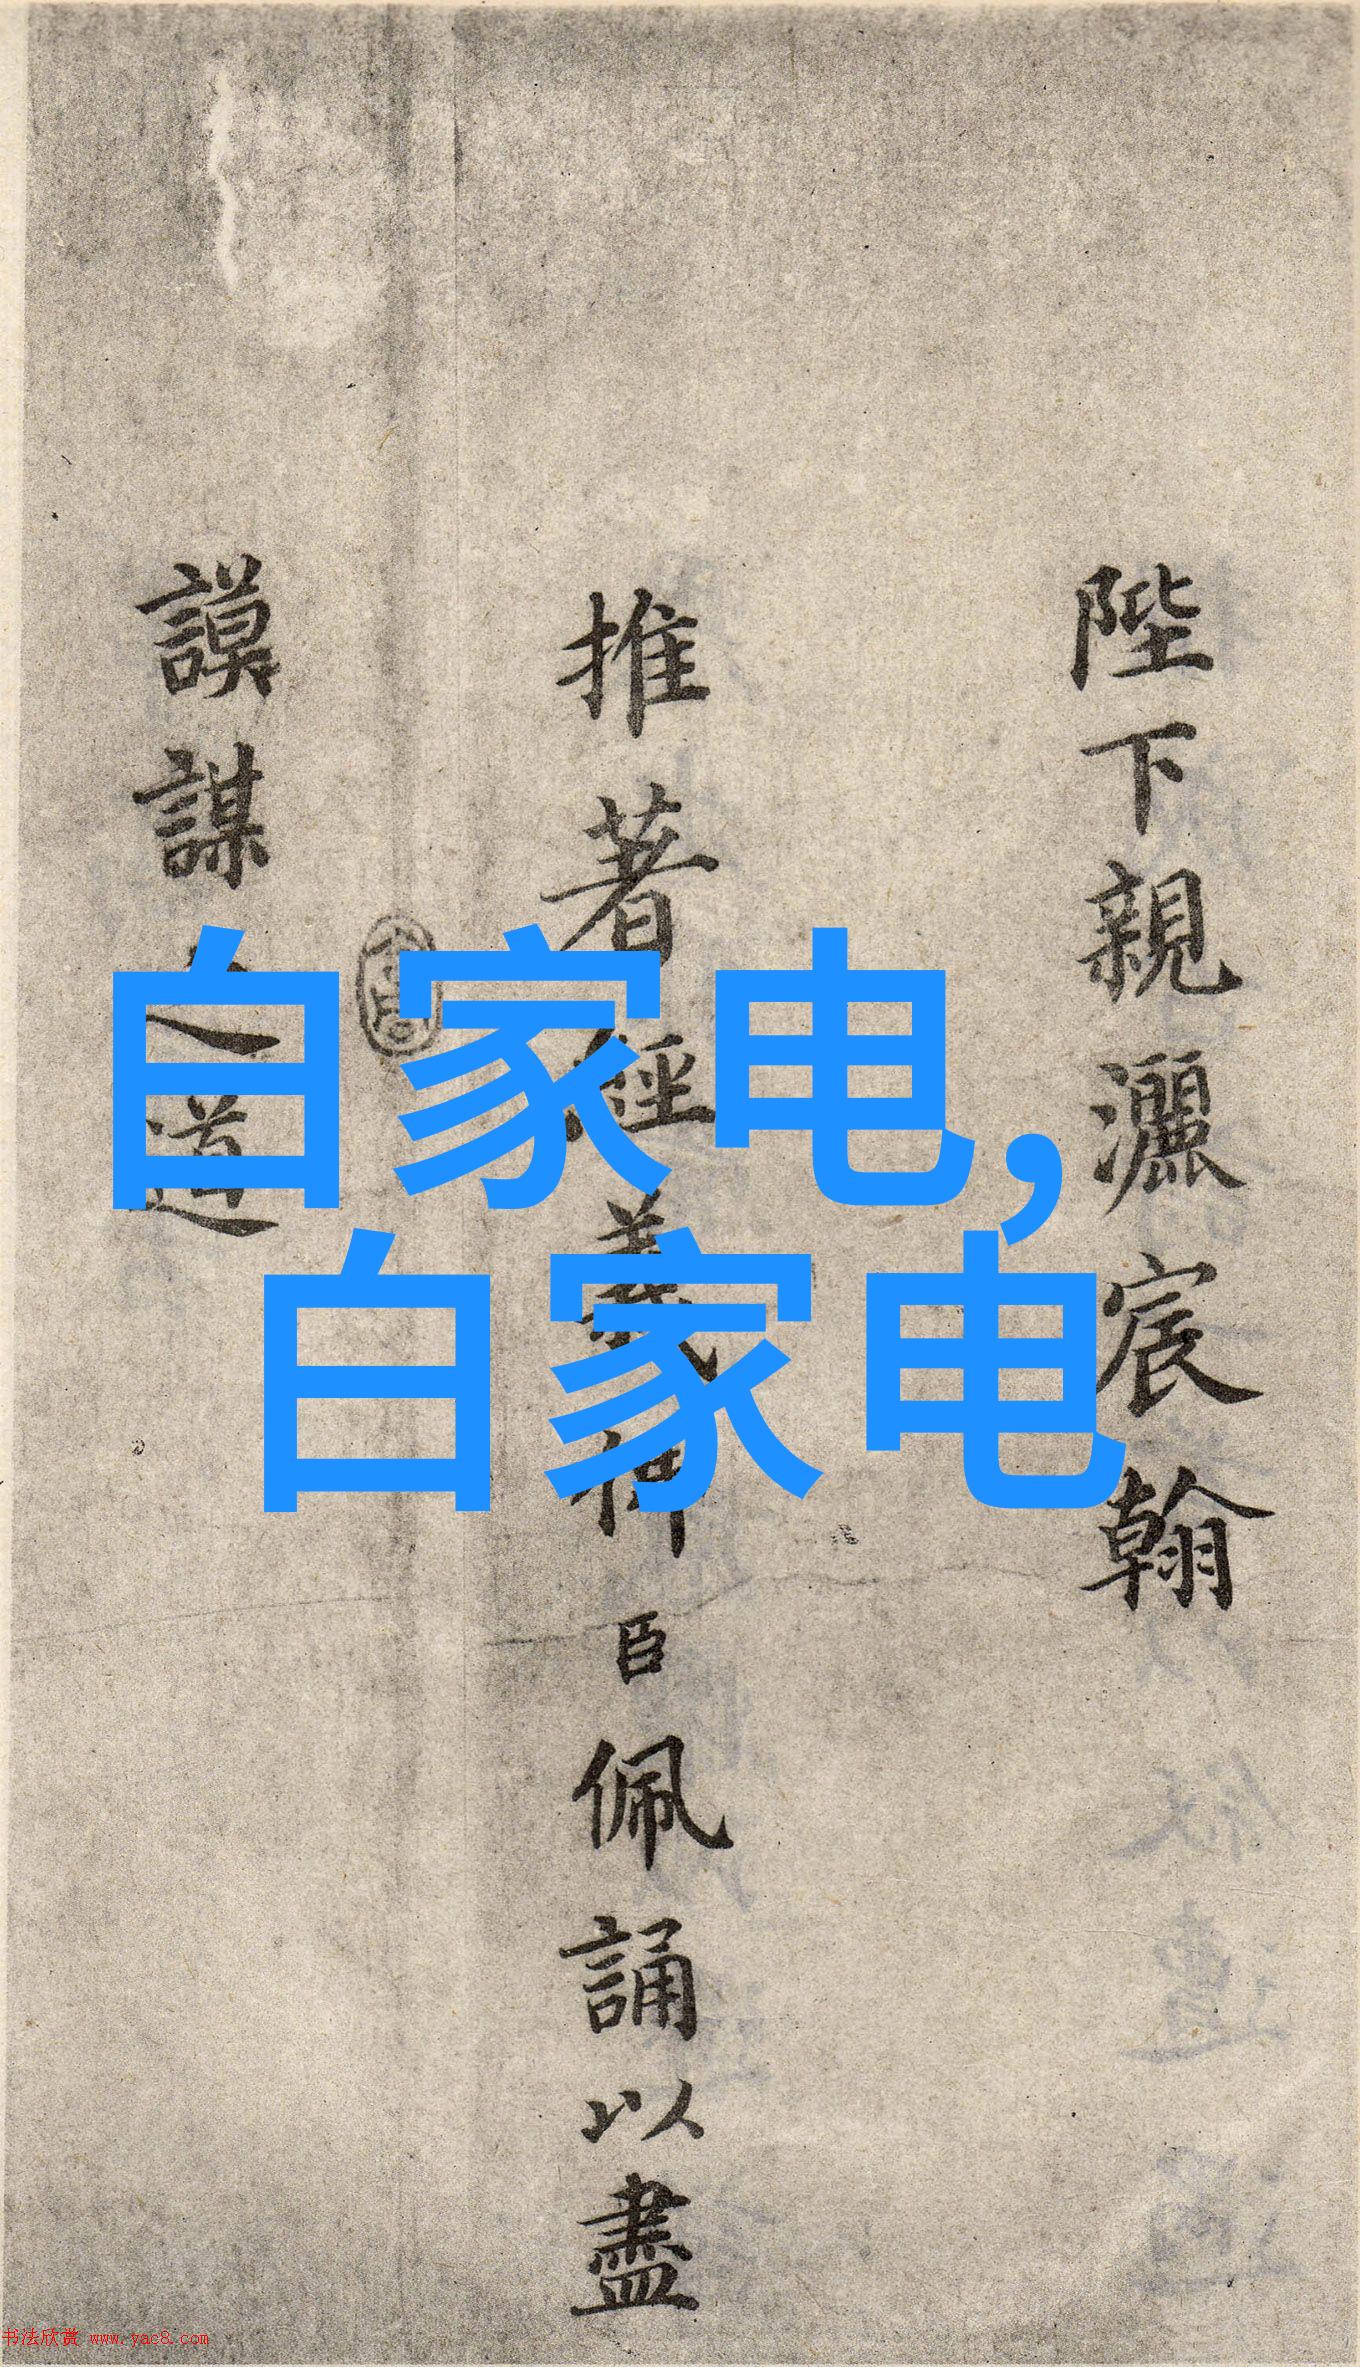 自家电,
白家电
陛下親灑宸翰
推著經義臣佩誦以盡
謨謀之道
书法欣赏 www.yac8.com